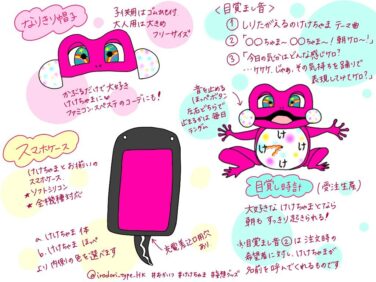 なりきり帽子
子供用はゴムあむけ
大人用は大きめ
フリーサイズ
かぶるだけで大好き
けけちゃまに♡
ファミコンスペステのコーデにも!
<目覚まし音>
① しりたがえるのけけちゃま テーマ曲
② 「〇〇ちゃま〜 〇〇ちゃま〜! 朝ケロ〜!」
③ 「今日の気分はどんな感じケロ?
…ケケケ。じゃあ、その気持ちを踊りで
表現してけてケロ?」
音を止める
ほっぺボタン
左右どちらで
止まるかは毎日
ランダム
け
け
け
け
スマホケース
けけちゃまとお揃いの
スマホケース
★ソフトシリコン
★全機種対応
a. けけちゃま 体
b. けけちゃま ほっぺ
より内側の色を選べます
充電差込口用穴
あり
目覚し時計 (受注生産)
大好きな けけちゃまとなら
朝も すっきり起きられる!
※目覚まし音②は注文時の
希望者に対し、けけちゃまが
名前を呼んでくれるものです
@irodori_type.HK #おかいつ #けけちゃま #妄想グッズ